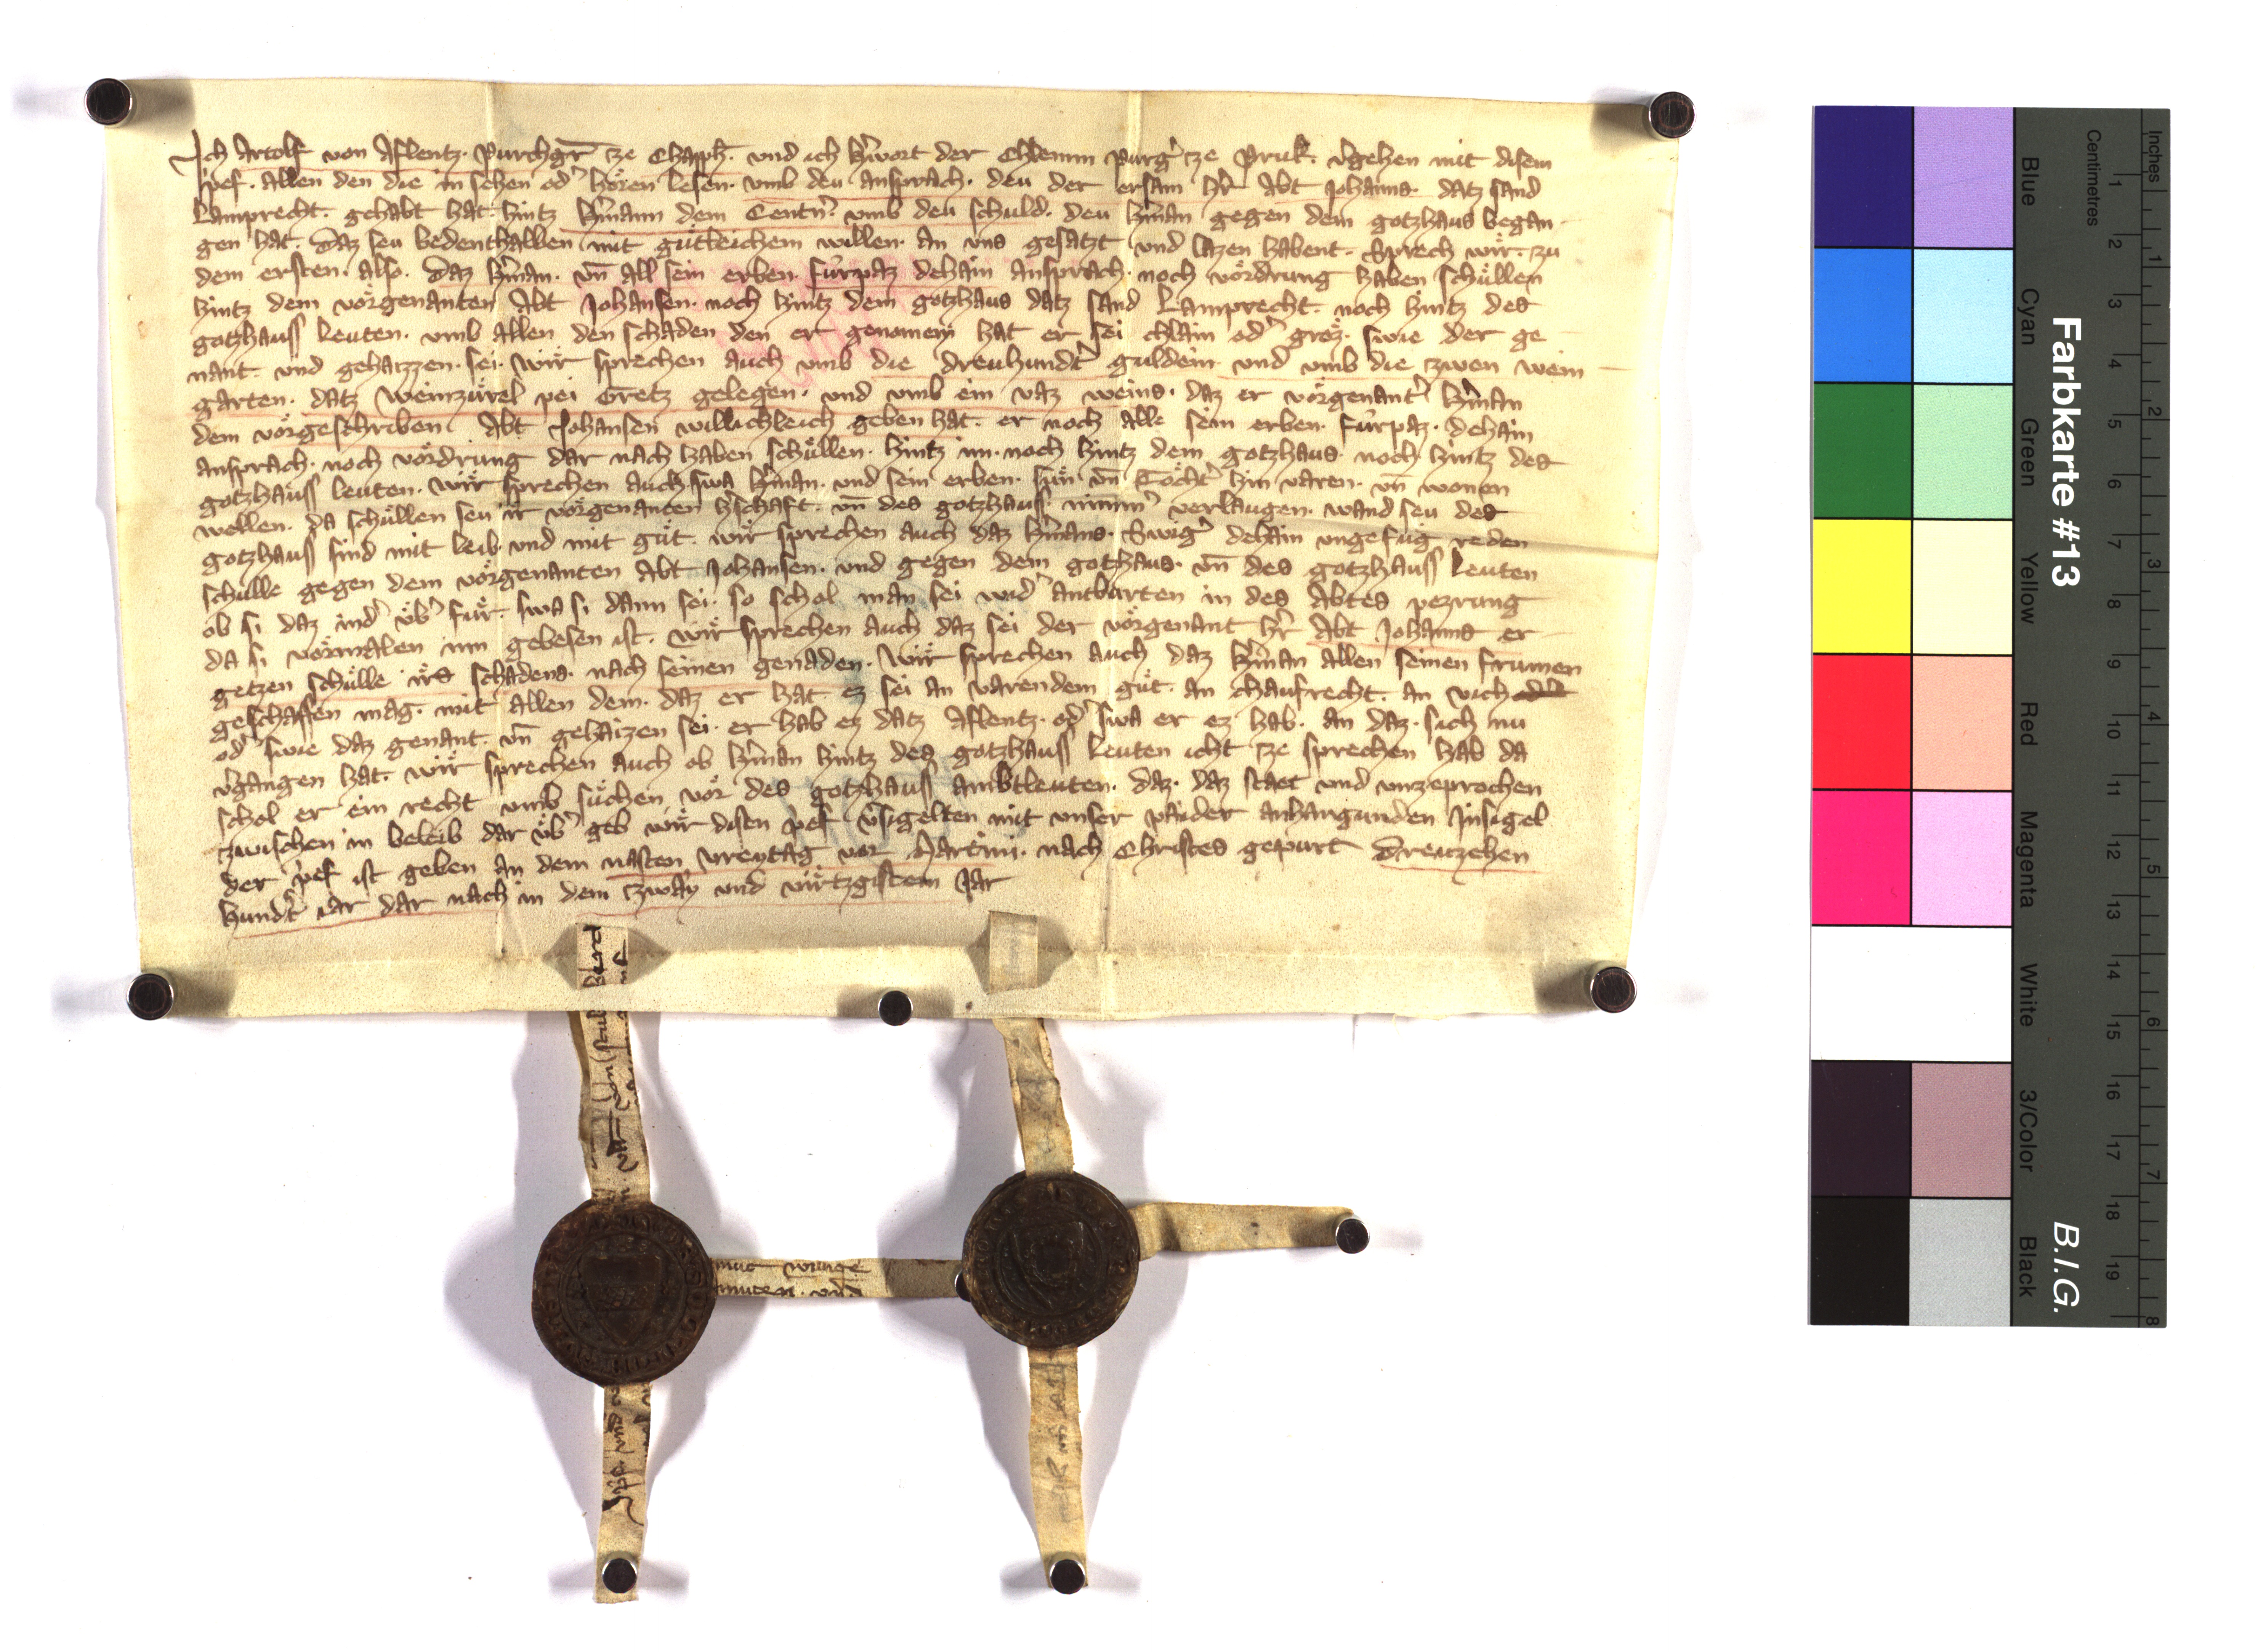 Ich Artolf von Aflentz. Purchgr̄ ze Chapph̄. vnd ich hʼwort der Chlemm purgʼ ze Pruk. vʼgehen mit disem
pʼef. allen den die in sehen odʼ hörent lesen. vmb deu ansprach. deu der ersam hʼr Abt Johanns. datz sand
Lamprecht. gehabt hat. hintz hʼmann dem Centnʼ. vmb deu schuld. deu hʼman gegen dem gotzhaus began
gen hat. Daz seu bedenthalben mit gůtleichem willen. an vns gesatzt vnd lazen habent. Sprech wir. zu
dem ersten. also. Daz hʼman. vn̄ all sein erben. fůrpaz dehain ansprach. noch vödrung haben schůllen
hintz dem vorgenanten Abt Johansen. noch hintz dem gotzhaus datz sand Lamprecht. noch hintz des
gotzhauss leuten. vmb allen den schaden den er genomen hat er sei chlain odʼ groz. swie der ge
nant. vnd gehaizzen. sei. Wir sprechen auch vmb die dreuhundʼt guldein vnd vmb die zwen wein
garten. datz Weinzůrel pei Gretz gelegen. vnd vmb ein vaz weins. daz er vorgenantʼ hʼman
dem vorgeschriben Abt Johansen willichleich geben hat. er noch alle sein erben. fůrpaz. dehain
ansprach. noch vördrung dar nach haben schůllen. hintz im. noch hintz dem gotzhaus. noch hintz des
gotzhauss leuten. Wir sprechen auch swa hʼman. vnd sein erben. sůn vn̄ Töchtʼ hin varen. vn̄ wonen
wellen. da schůllen seu ir vorgenanten hʼschaft. vn̄ des gotzhauss nimmʼ verlaugen. wand seu des
gotzhauss sind mit leib. vnd mit gůt. wir sprechen auch daz hʼmans. Swigʼ dehain vngefůg reden
schulle gegen dem vorgenanten Abt Johansen. vnd gegen dem gotzhaus. vn̄ des gotzhauss leuten
ob si daz indʼ vbʼ fůr. swa si dann sei. so schol man sei widʼ antburten in des Abtes pezrung
da si vormalen inn gebesen ist. Wir sprechen auch daz sei der vorgenant hʼr Abt Johanns er
getzen schůlle irs schadens. nach seinen genaden. Wir sprechen auch daz hʼman allen seinen frumen
geschaffen mag. mit allen dem. daz er hat. ez sei an varendem gůt. an chaufrecht. an vich
odʼ swie daz genant. vn̄ gehaizen sei. er hab ez datz Aflentz. odʼ swa er ez hab. an daz. sich nu
vʼgangen hat. wir sprechen auch ob hʼman hintz des gotzhauss leuten icht ze sprechen hab da
schol er ein recht vmb sůchen vor des gotzhauss ambtleuten. daz. daz staet vnd vnzeprochen
zwischen in beleib dar vbʼ geb wir disen pʼef vʼsigelten mit unser paider anhangunden Insigel
der pʼef ist geben an dem nasten vreytag vor Martini. nach Christes gepurt Dreuzehen
hundʼt iar dar nach in dem zway vnd virtzgistem Jar
Farbkarte #13
B.I.G.
Inches
Centimetres
1 2 3 4 5 6 7 8
1 2 3 4 5 6 7 8 9 10 11 12 13 14 15 16 17 18 19
Blue
Cyan
Green
Yellow
Red
Magenta
White
3/Color
Black